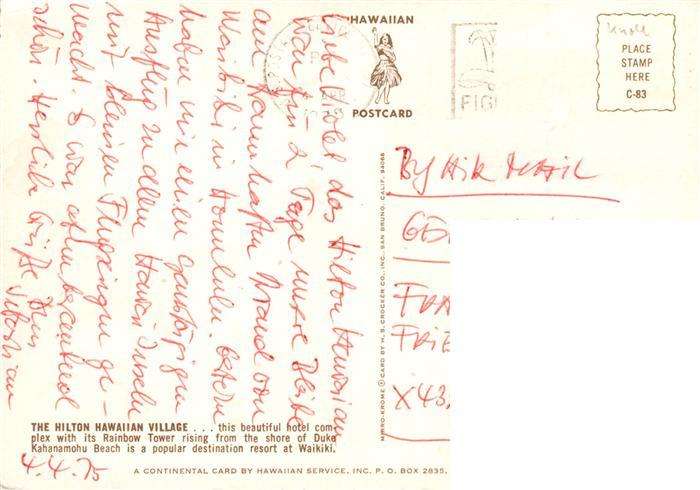 HAWAIIAN
POSTCARD
FIG
PLACE
STAMP
HERE
C-83
Liebe Violet das Hilton Hawaiian
war für 2 Tage unsere Bleibe
am traumhaften Strand von
Waikiki in Honolulu. Gestern
haben wir einen ganztägigen
Ausflug zu allen Hawaii Inseln
mit kleinen Flugzeugen ge-
macht. Es war atemberaubend
schön. Herzliche Grüße Dein
Sebastian
By Air Mail
GE
FRA
FRIE
X43
THE HILTON HAWAIIAN VILLAGE . . . this beautiful hotel com-
plex with its Rainbow Tower rising from the shore of Duke
Kahanamohu Beach is a popular destination resort at Waikiki.
4.4.75
A CONTINENTAL CARD BY HAWAIIAN SERVICE, INC. P. O. BOX 2835,
MIRRO-KROME ® CARD BY H. S. CROCKER CO., INC. SAN BRUNO, CALIF. 94066